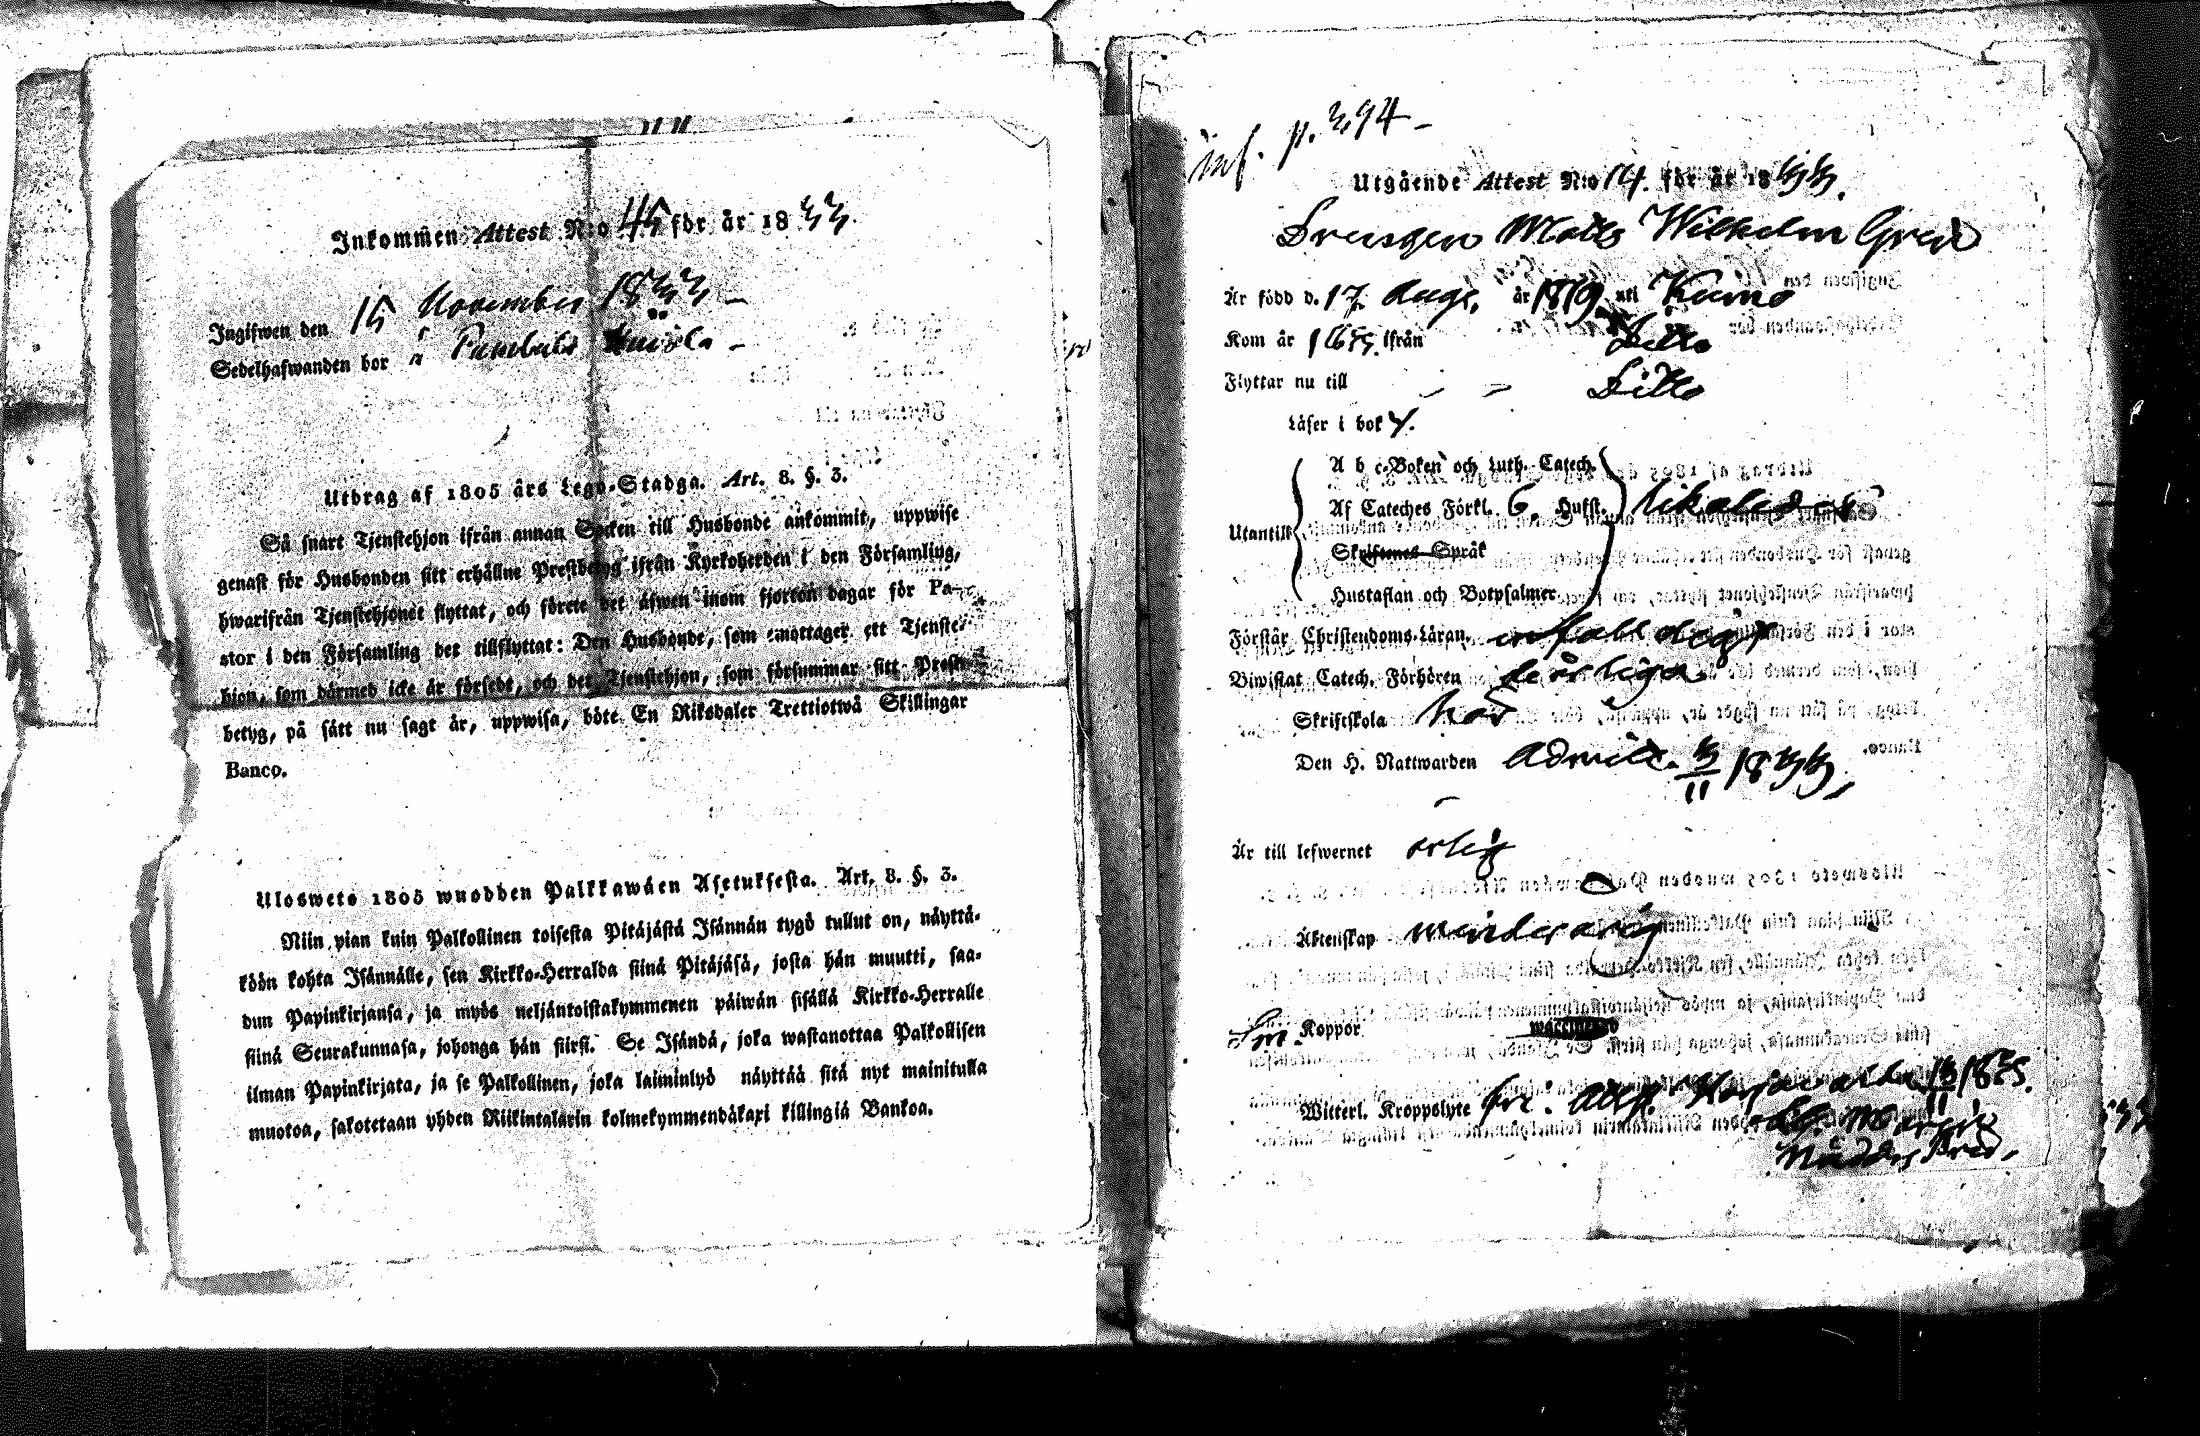 Inkommen Attest N:o 45 för år 1833.
Ingifwen den 15 November 1833 –
Sedelhafwanden bor å
Utdrag af 1805 års Lego-Stadga. Art. 8. §. 3.
Så snart Tjenstehjon ifrån annan Socken till Husbonde ankommit, uppwise
genast för Husbonden sitt erhållne Prestbetyg ifrån Kyrkoherden i den Församling,
hwarifrån Tjenstehjonet flyttat, och förete det äfwen inom fjorton dagar för Pa-
stor i den Församling det tillflyttat: Den Husbonde, som emottager ett Tjenste-
hjon, som därmed icke är försedt, och det Tjenstehjon, som försummar sitt Prest-
betyg, på sätt nu sagt är, uppwisa, böte En Riksdaler Trettiotwå Skillingar
Banco.
Ulosweto 1805 wuodden Palkkawäen Asetuksesta. Art. 8. §. 3.
Niin pian kuin Palkollinen toisesta Pitäjästä Isännän tygö tullut on, näyttä-
köön kohta Isännälle, sen Kirkko-Herralda siinä Pitäjäsä, josta hän muutti, saa-
dun Papinkirjansa, ja myös neljäntoistakymmenen päiwän sisällä Kirkko-Herralle
siinä Seurakunnasa, johonga hän siirsi. Se Isändä, joka wastanottaa Palkollisen
ilman Papinkirjata, ja se Palkollinen, joka laiminlyö näyttää sitä nyt mainitulla
muotoa, sakotetaan yhden Riikintalarin kolmekymmendäkaxi killingiä Bankoa.
inf. p. 394 –
Utgående Attest N:o 14. för år 1833.
Drengen Matts Wilhelm Gren
Är född d. 17 Aug. år 1819 uti Kumo
Kom år ifrån Ditto
Flyttar nu till Ditto
Läser i bok
A b c-Boken och Luth. Catech.
Af Cateches Förkl. 6. Hufst.
Utantill
Skriftenes Språk
Hustaflan och Botpsalmer
likaledes
Förstår Christendoms-Läran, enfaldigt
Biwistat Catech. Förhören årligen
Skriftskola
Den H. Nattwarden admitt. 3/11 1833,
Är till lefwernet ärlig
Äktenskap minderårig
Koppor
Witterl. Kroppslyte fri.